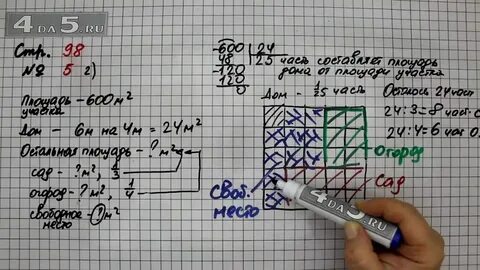 4DA5.RU
Стр. 98
№ 5 2)
Площадь участка – 600 м²
Дом – 6м на 4м = 24 м²
Остальная площадь – ? м²
сад – ? м², 1/3
огород – ? м², 1/4
свободное место – ? м²
600 | 24
48 | 25 часть составляет площадь
120 дома от площади участка
120
0
Дом – 1/25 часть
Осталось 24 част
24 : 3 = 8 част.
24 : 4 = 6 част.
Огород
Сад
Своб. место
4DA5.RU